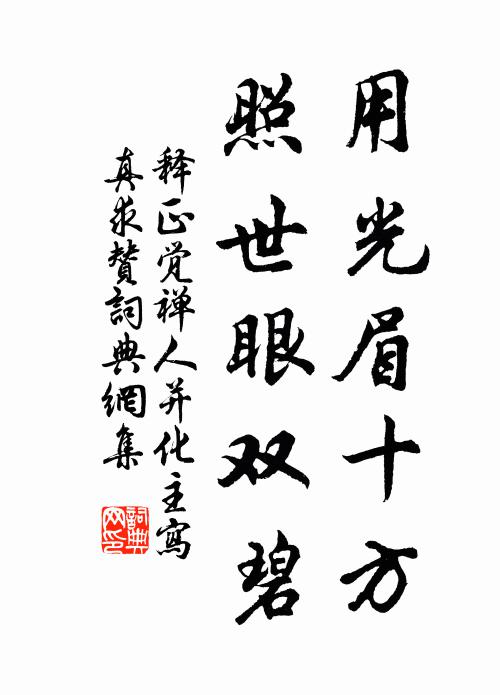 用光眉十方
照世眼双碧
释正觉禅人并化主寫
真求赞詞典網集
詞典网印